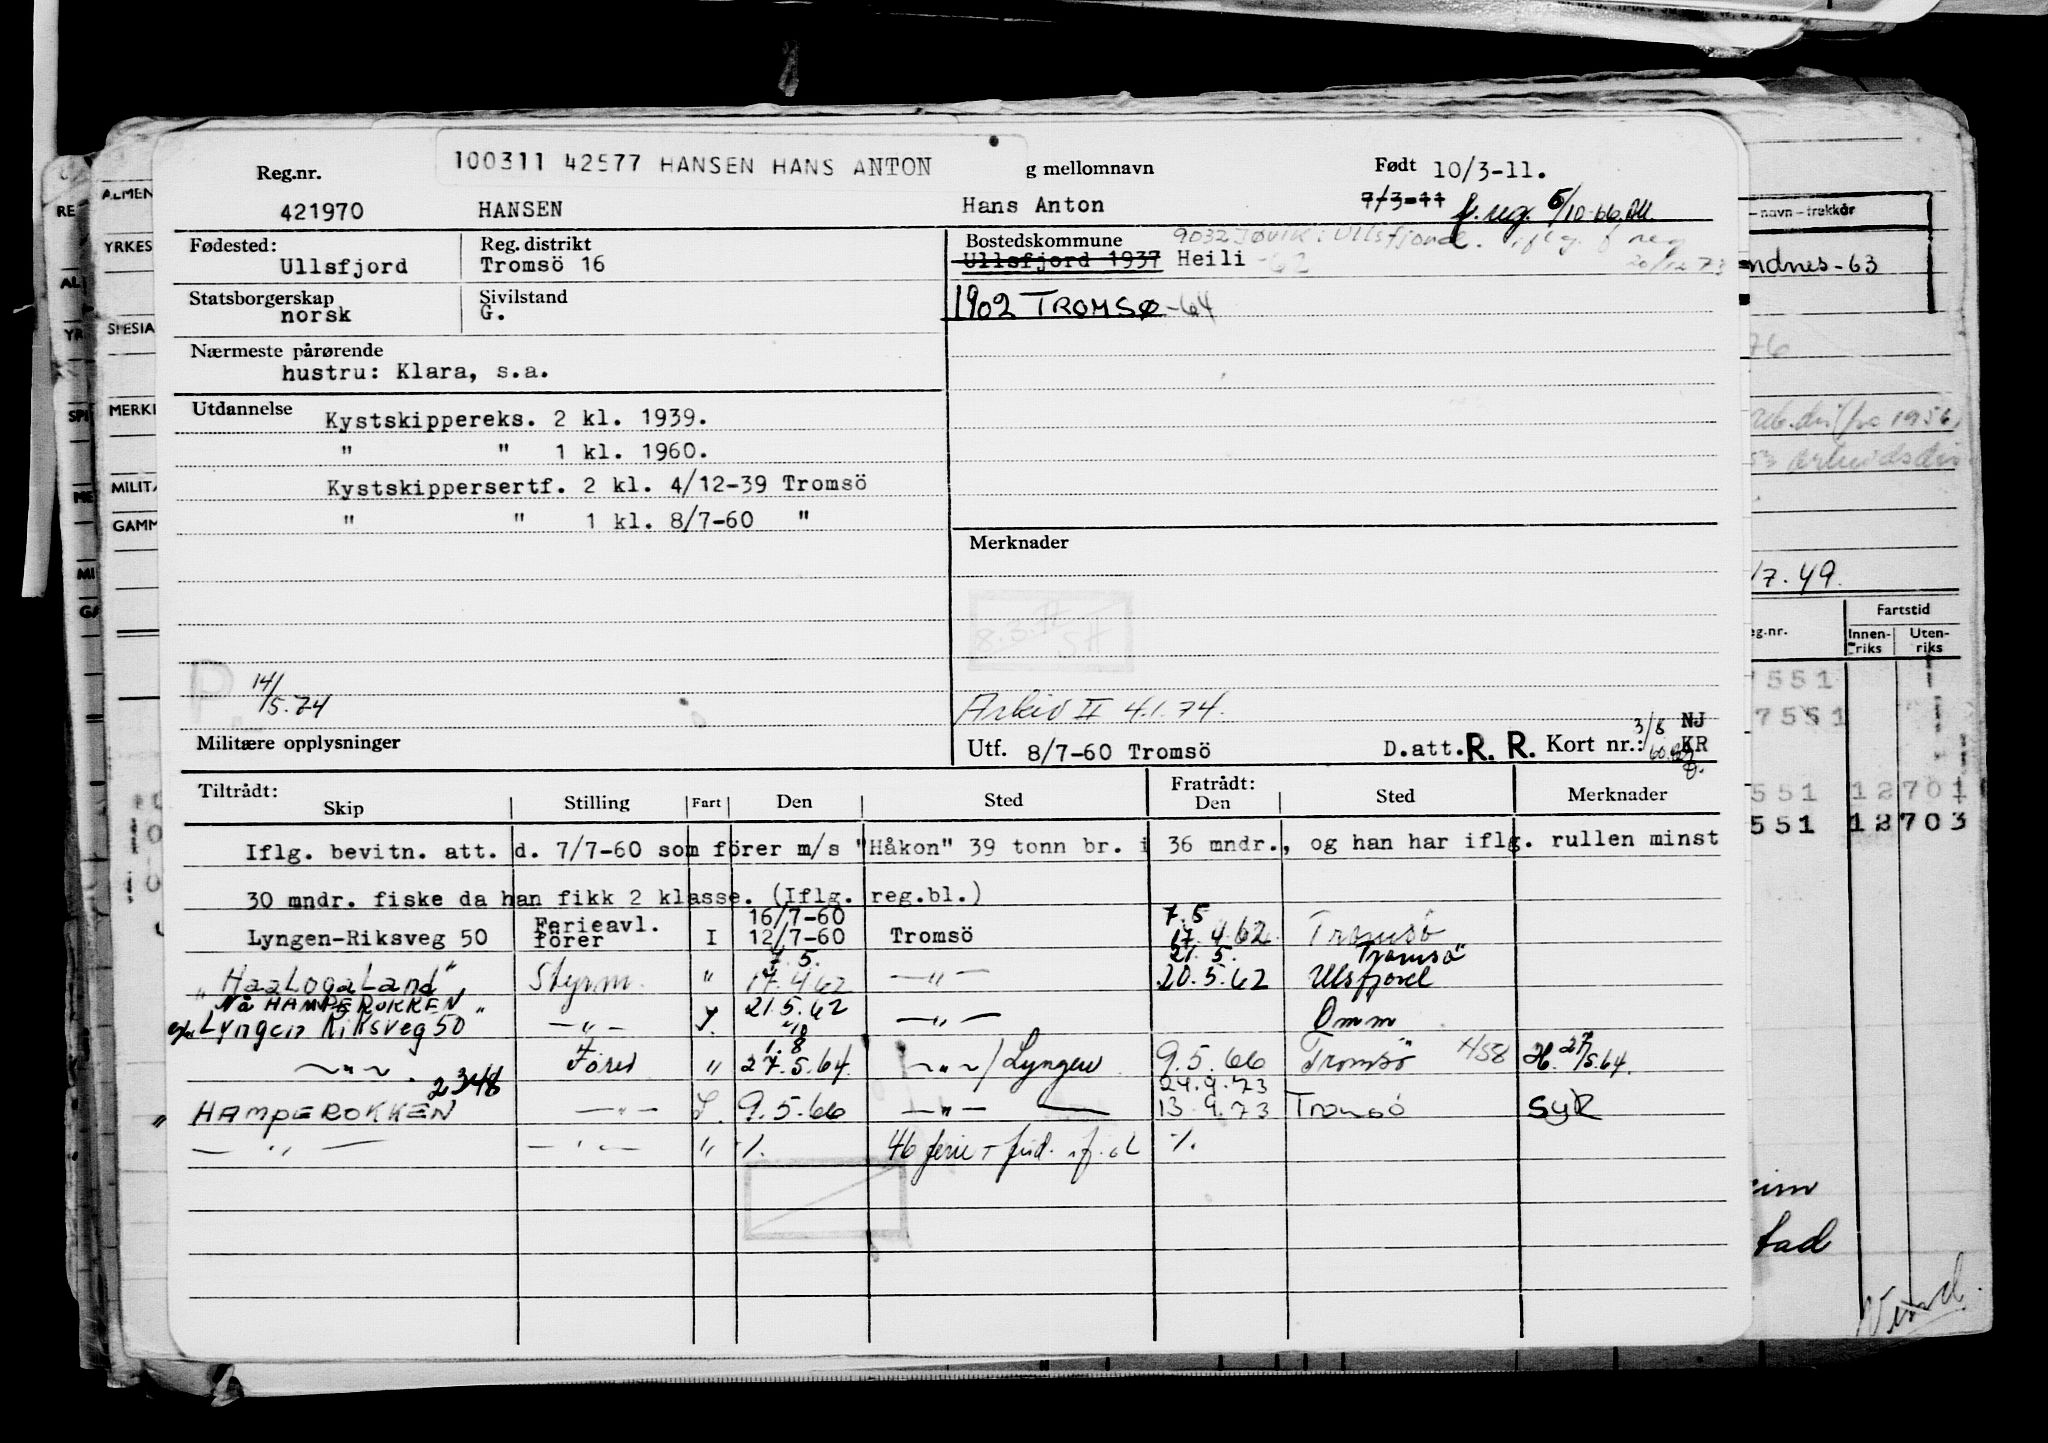 100311 42577 HANSEN HANS ANTON
Reg.nr. g mellomnavn Født 10/3-11.
421970 HANSEN Hans Anton 7/3-11 f.reg. 5/10-66.
Fødested: Reg. distrikt Bostedskommune 9032 Jøvik i Ullsfjord. iflg. f reg
Ullsfjord Tromsö 16 Ullsfjord 1937 Heili -62 20/12 73
Statsborgerskap Sivilstand 1902 TROMSØ -64
norsk G.
Nærmeste pårørende
hustru: Klara, s.a.
Utdannelse Kystskippereks. 2 kl. 1939.
" " 1 kl. 1960.
Kystskippersertf. 2 kl. 4/12-39 Tromsö
" " 1 kl. 8/7-60 "
Merknader
P. 14/5.74
Arkiv II 4.1.74.
Militære opplysninger Utf. 8/7-60 Tromsö D.att. R. R. Kort nr.: 3/8 60 NJ KR
Tiltrådt: Fratrådt:
Skip Stilling Fart Den Sted Den Sted Merknader
Iflg. bevitn. att. d. 7/7-60 som förer m/s "Håkon" 39 tonn br. i 36 mndr., og han har iflg. rullen minst
30 mndr. fiske da han fikk 2 klasse. (Iflg. reg.bl.)
Ferieavl. 16/7-60 7.5
Lyngen-Riksveg 50 förer I 12/7-60 Tromsö 17.4.62 Tromsö
7.5. 21.5. Tromsö
"Haalogaland" Styrm. " 17.4 62 — " — 20.5.62 Ulsfjord
Nå HAMPEROKKEN 21.5.62
ex. Lyngen Riksveg 50" — " — I. — " — Omm
1.8
— " — Förer " 27.5.64. — " — / Lyngen 9.5.66 Tromsö H58 27/5.64.
2348 24.9.73
" HAMPEROKKEN — " — I. 9.5.66 — " — 13.9.73 Tromsö SyK
— " — — " — " %. 46 ferie + frid. %.
ALMEN
YRKES
SPESIA
MERKE
MILITÆ
GAMM
RE
AL
YR
SPE
ME
MI
GA
- navn - trekkår
ndnes-63
76
/7.49.
Fartstid
eg.nr. Innen-riks Uten-riks
7551
7551
551 12701
551 12703
eim
tad
Vend.